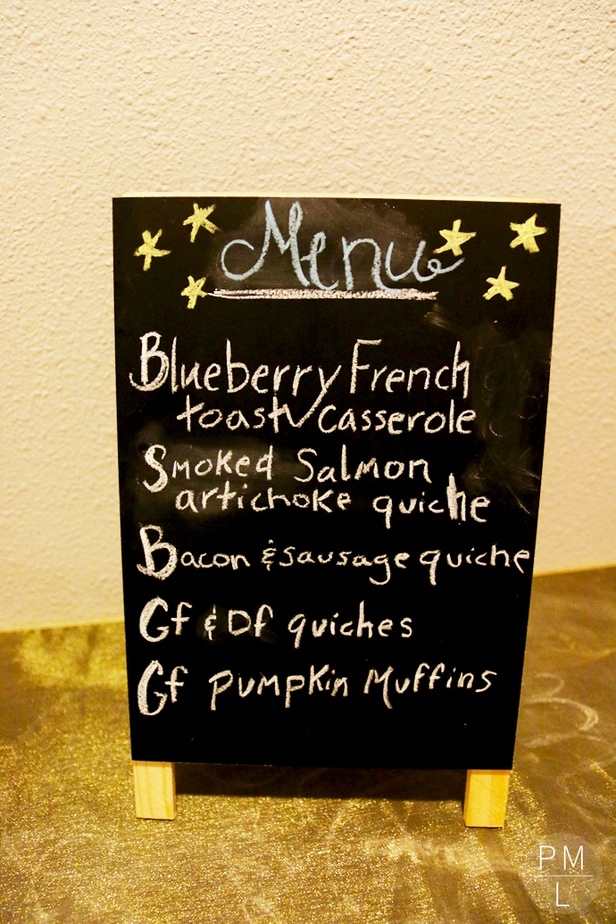 Menu
Blueberry French
toast casserole
Smoked Salmon
artichoke quiche
Bacon & sausage quiche
Gf & Df quiches
Gf pumpkin Muffins
PM
L